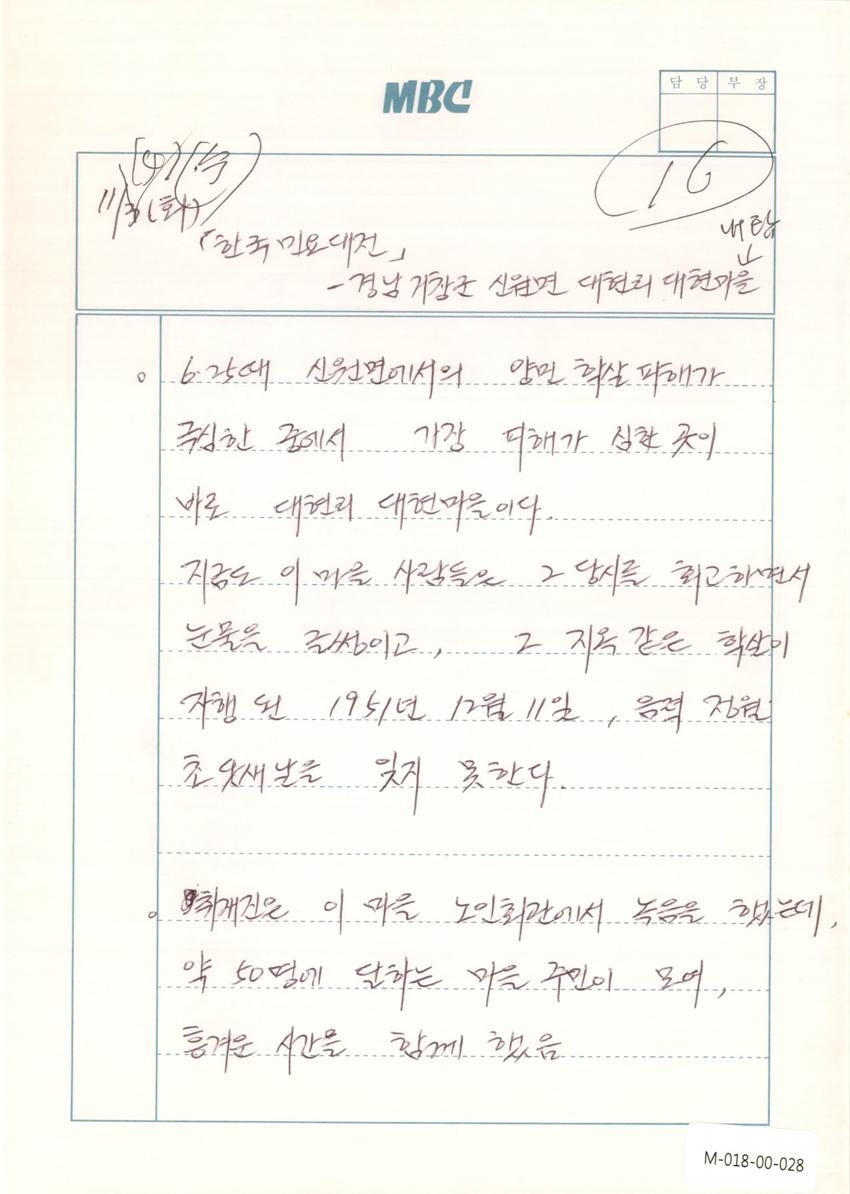 MBC
담 당 부 장
16
11/3 (화)
내탐
「한국민요대전」
- 경남 거창군 신원면 대현리 대현마을
o 6.25때 신원면에서의 양민 학살 피해가
극심한 중에서 가장 피해가 심한 곳이
바로 대현리 대현마을이다.
지금도 이 마을 사람들은 그 당시를 회고하면서
눈물을 글썽이고, 그 지옥같은 학살이
자행된 1951년 12월 11일, 음력 정월
초닷새날을 잊지 못한다.
o 취재진은 이 마을 노인회관에서 녹음을 했는데,
약 50명에 달하는 마을 주민이 모여,
흥겨운 시간을 함께 했음
M-018-00-028